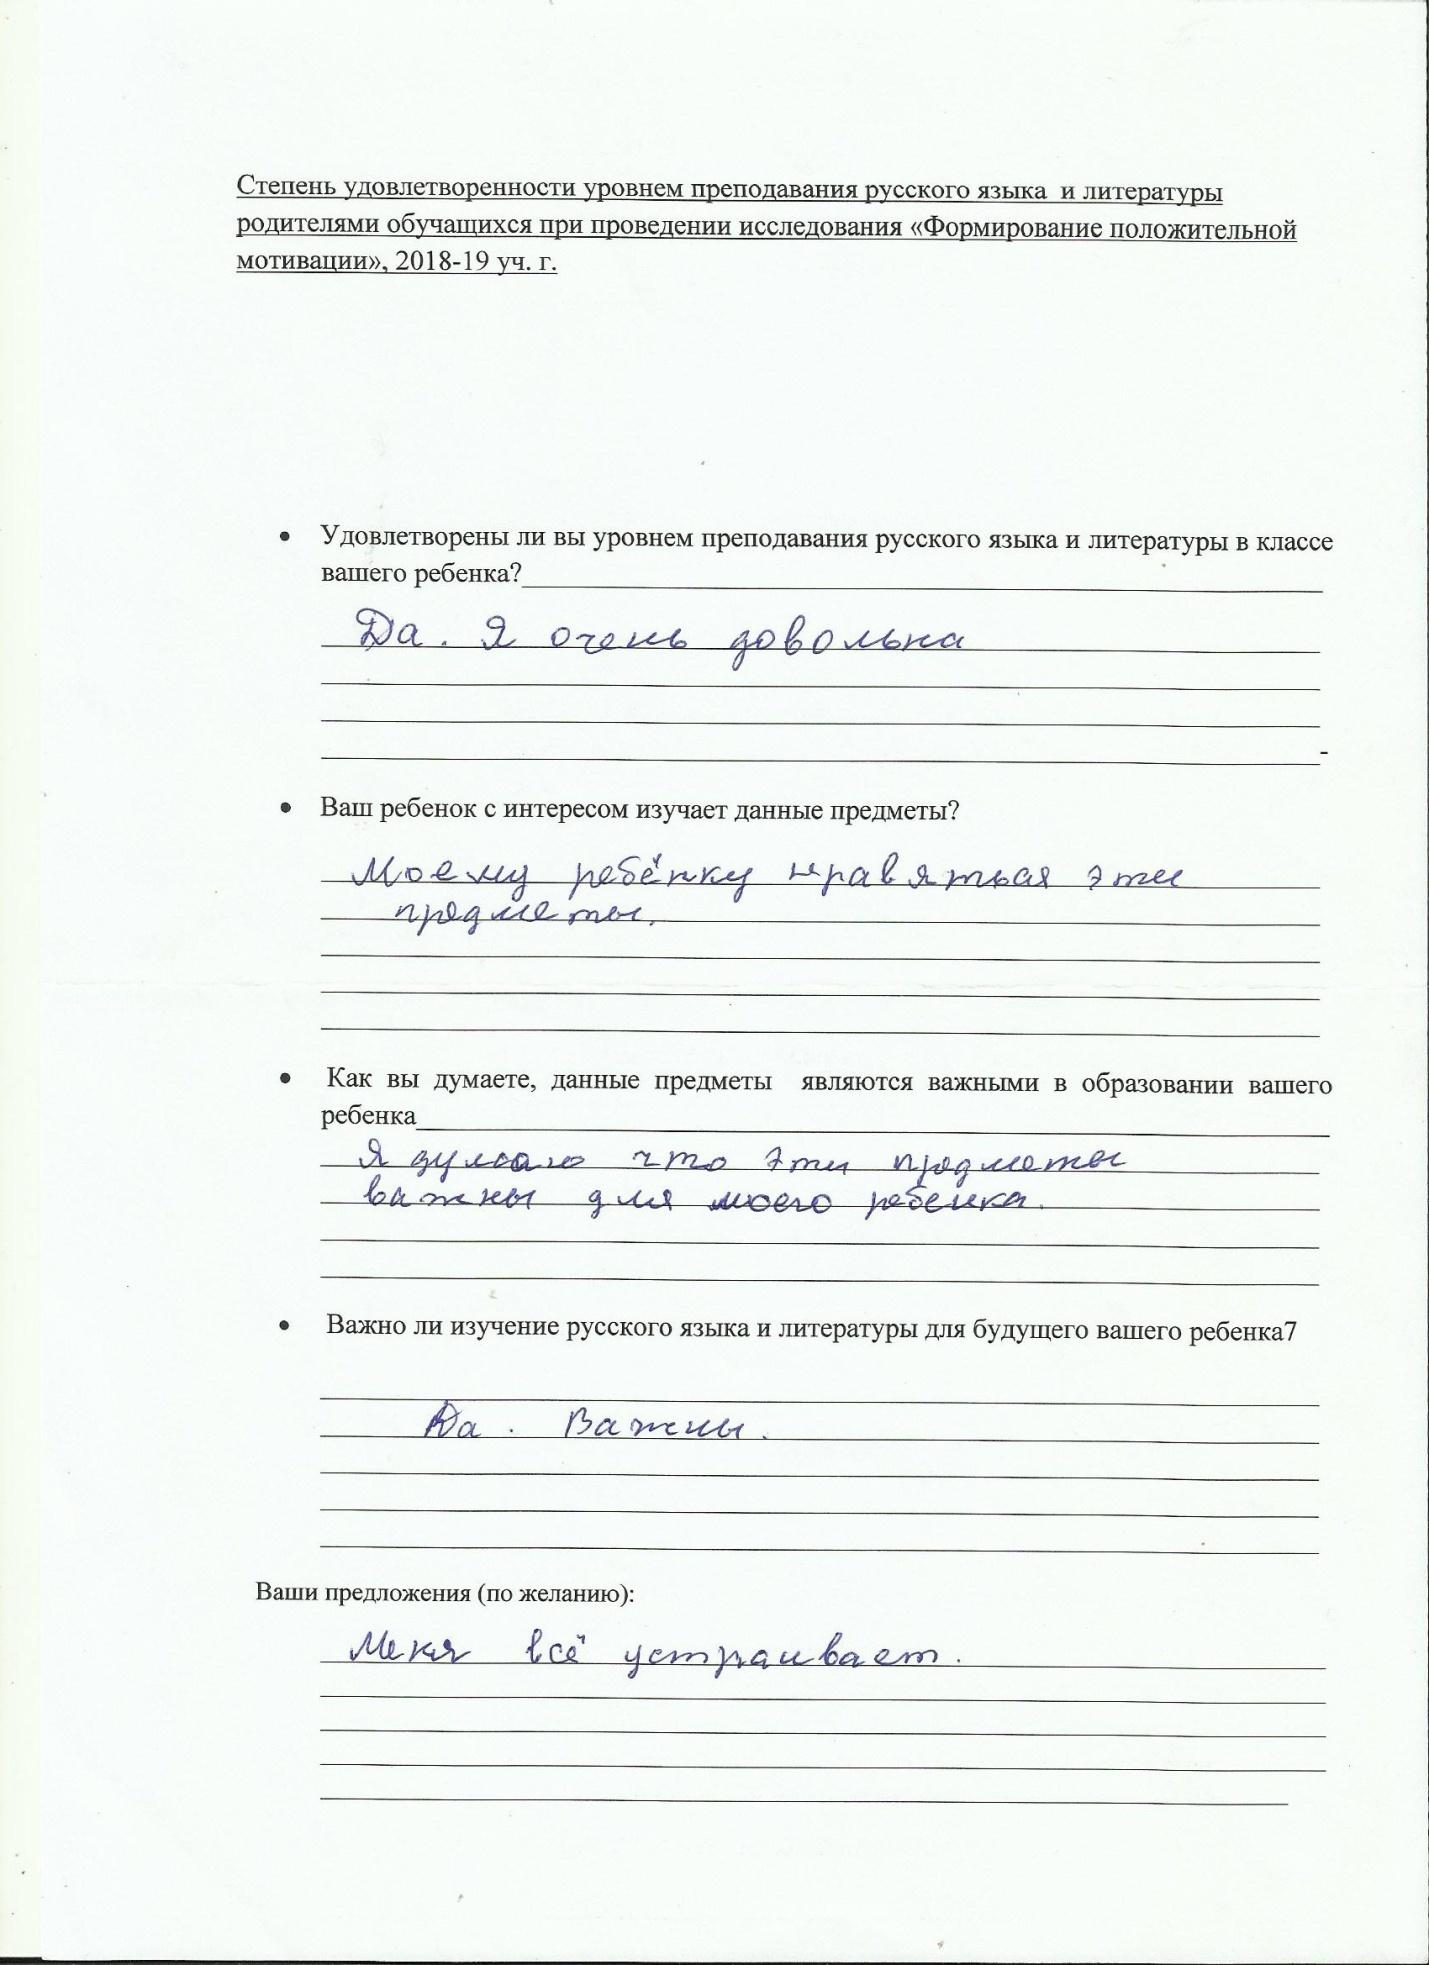 Степень удовлетворенности уровнем преподавания русского языка и литературы
родителями обучащихся при проведении исследования «Формирование положительной
мотивации», 2018-19 уч. г.
• Удовлетворены ли вы уровнем преподавания русского языка и литературы в классе
вашего ребенка?
Да. Я очень довольна
-
• Ваш ребенок с интересом изучает данные предметы?
Моему ребёнку нравяться эти
предметы.
• Как вы думаете, данные предметы являются важными в образовании вашего
ребенка
Я думаю что эти предметы
важны для моего ребенка.
• Важно ли изучение русского языка и литературы для будущего вашего ребенка7
Да. Важны.
Ваши предложения (по желанию):
Меня всё устраивает.